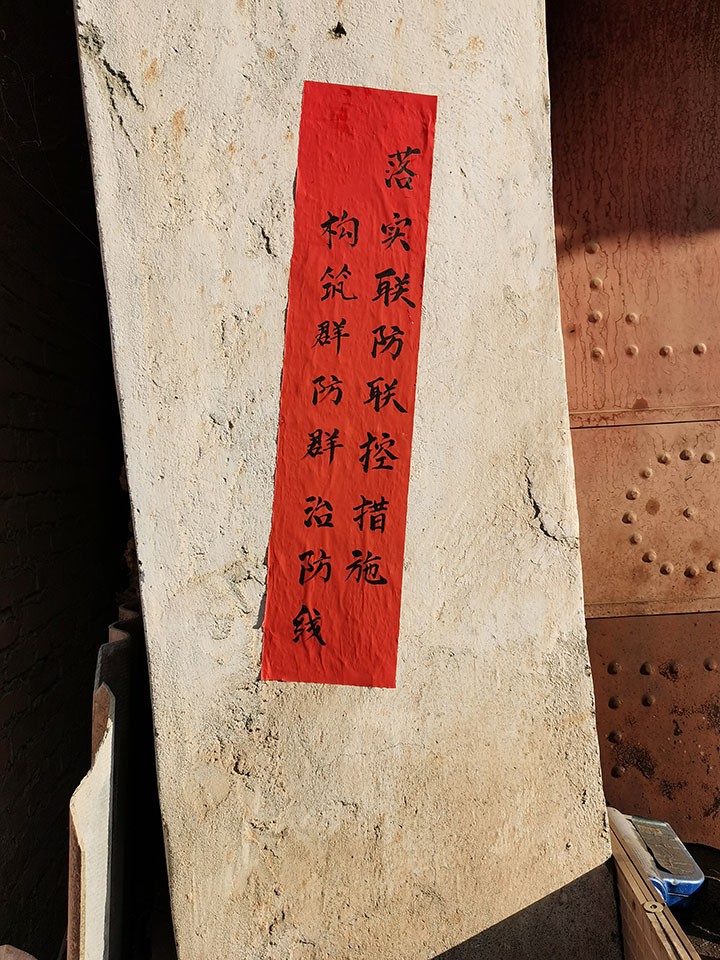 落实联防联控措施
构筑群防群治防线